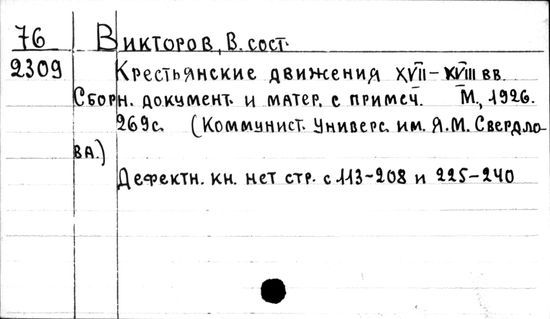 76 Викторов, В. сост.
2309 Крестьянские движения XVII-XVIII вв.
Сборн. документ. и матер. с примеч. М., 1926.
269с. (Коммунист. универс. им. Я.М. Свердло-
ва.)
Дефектн. кн. нет стр. с 113-208 и 225-240